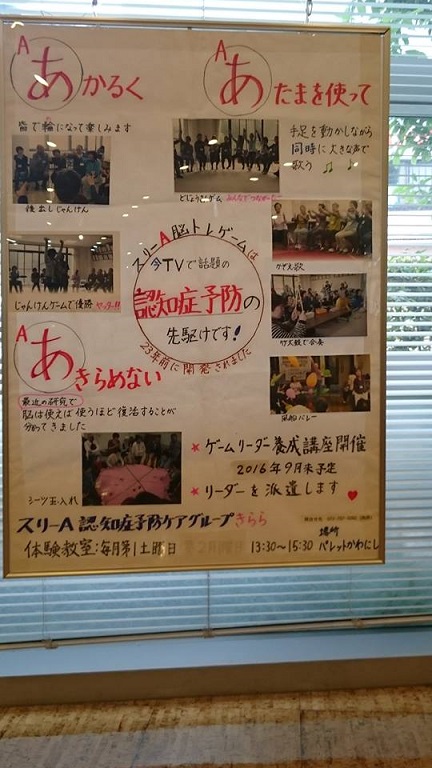 A
あかるく
皆で輪になって楽しみます
後出しじゃんけん
じゃんけんゲームで優勝 ヤッター!!
A
あたまを使って
手足を動かしながら
同時に大きな声で
歌う ♪ ♪
どじょうさんゲーム みんなでつながって
かぞえ歌
竹太鼓で合奏
風船バレー
スリーA脳トレゲームは
今TVで話題の
認知症予防の
先駆けです!
23年前に開発されました
A
あきらめない
最近の研究で
脳は使えば使うほど復活することが
分ってきました
シーツ玉入れ
★ ゲームリーダー養成講座開催
2016年9月末予定
★ リーダーを派遣します ♥
スリーA認知症予防ケアグループきらら
体験教室:毎月第1土曜日
13:30~15:30
場所
パレットかわにし